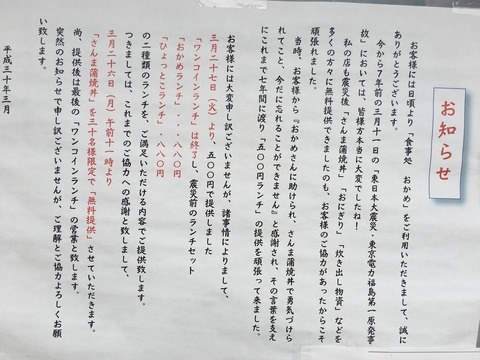 お知らせ
お客様には日頃より「食事処 おかめ」をご利用いただきまして、誠に
ありがとうございます。
今から7年前の三月十一日の「東日本大震災・東京電力福島第一原発事
故」においては、皆様方本当に大変でしたね！
私の店も震災後「さんま蒲焼丼」「おにぎり」「炊き出し物資」などを
多くの方々に無料提供できましたのも、お客様のご協力があったからこそ
頑張れました。
当時、お客様から『おかめさんに助けられ、さんま蒲焼丼で勇気づけら
れてこと、今だに忘れることができません』と感謝され、その言葉を支え
にこれまで七年間に渡り「五〇〇円ランチ」の提供を頑張って来ました。
お客様には大変申し訳ございませんが、諸事情によりまして、
三月二十七日（火）より、五〇〇円で提供しました
「ワンコインランチ」は終了し、震災前のランチセット
「おかめランチ」・・八八〇円
「ひょっとこランチ」・八八〇円
の二種類のランチを、ご満足いただける内容でご提供致します。
つきましては、これまでのご協力への感謝と致しまして、
三月二十六日（月）午前十一時より
「さんま蒲焼丼」を三十名様限定で「無料提供」させていただきます。
尚、提供後は最後の「ワンコインランチ」の営業と致します。
突然のお知らせで申し訳ございませんが、ご理解とご協力よろしくお願
い致します。
平成三十年三月